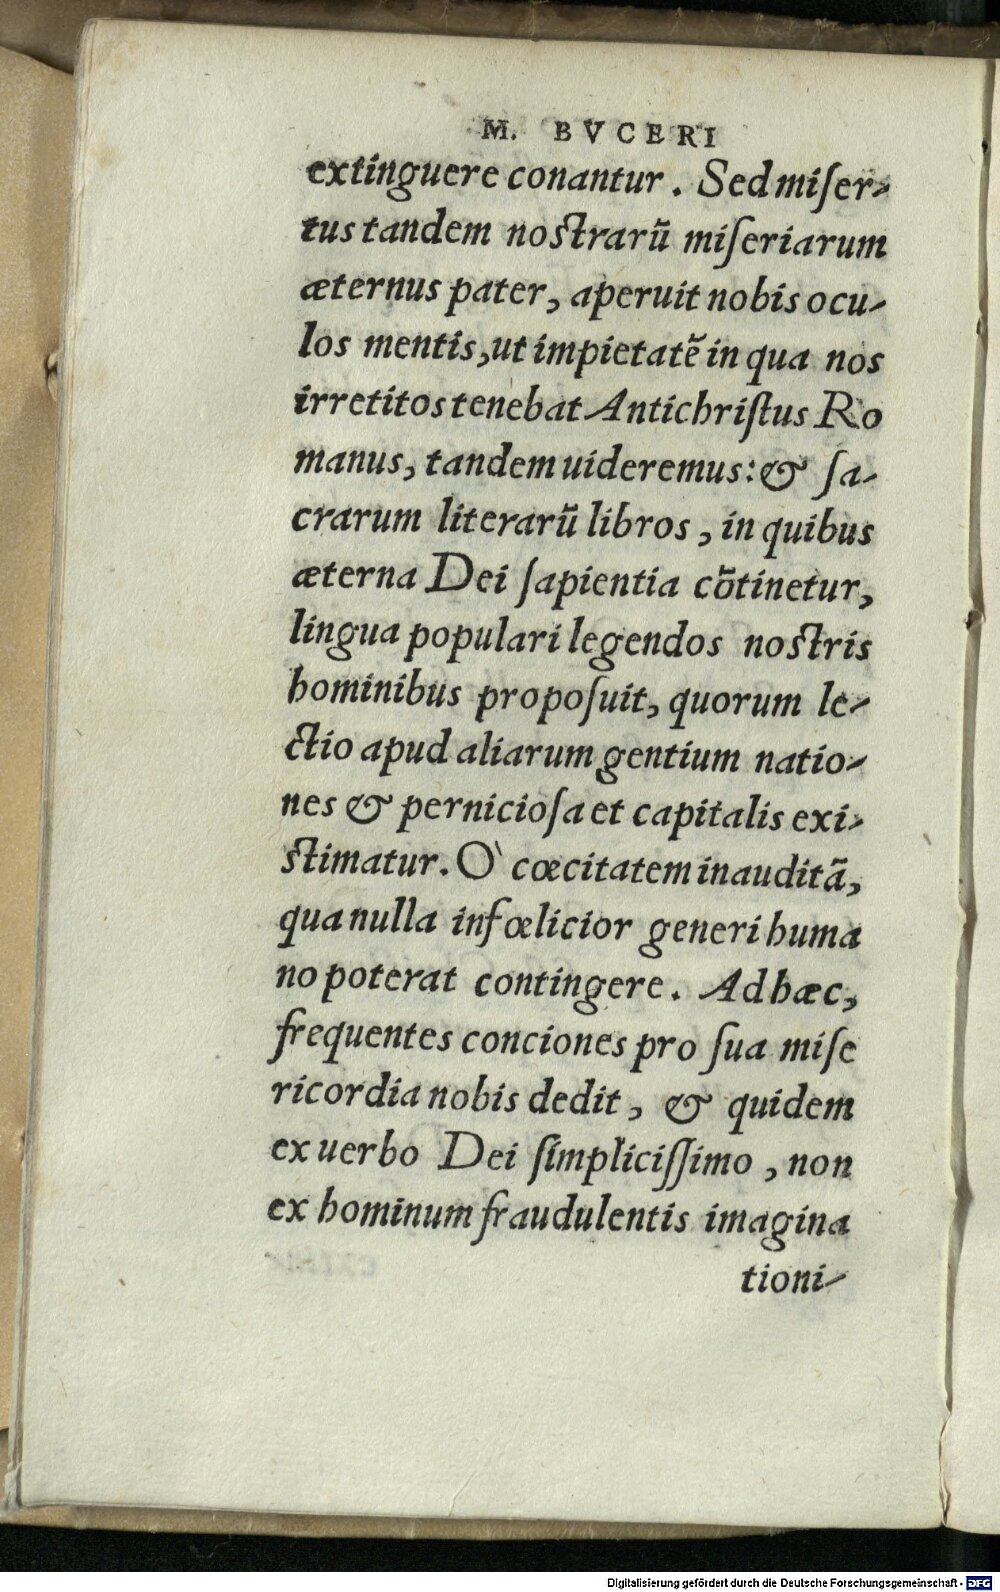 M. BVCERI
extinguere conantur. Sed miser-
tus tandem nostrarū miseriarum
æternus pater, aperuit nobis ocu-
los mentis, ut impietatē in qua nos
irretitos tenebat Antichristus Ro
manus, tandem uideremus: & sa-
crarum literarū libros, in quibus
æterna Dei sapientia cōtinetur,
lingua populari legendos nostris
hominibus proposuit, quorum le-
ctio apud aliarum gentium natio-
nes & perniciosa et capitalis exi-
stimatur. O` cœcitatem inauditā,
qua nulla infœlicior generi huma
no poterat contingere. Ad hæc,
frequentes conciones pro sua mise
ricordia nobis dedit, & quidem
ex uerbo Dei simplicissimo, non
ex hominum fraudulentis imagina
tioni-
Digitalisierung gefördert durch die Deutsche Forschungsgemeinschaft - DFG